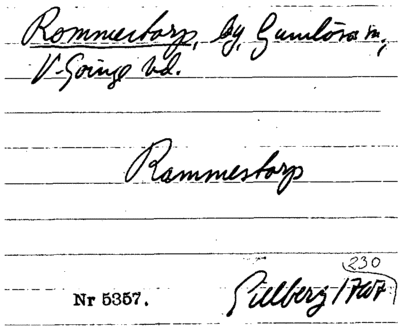 Rommestorp, by, Gumlösa sn,
V-Göinge hd.
Rammestorp
230
Nr 5357. Gillberg 1767